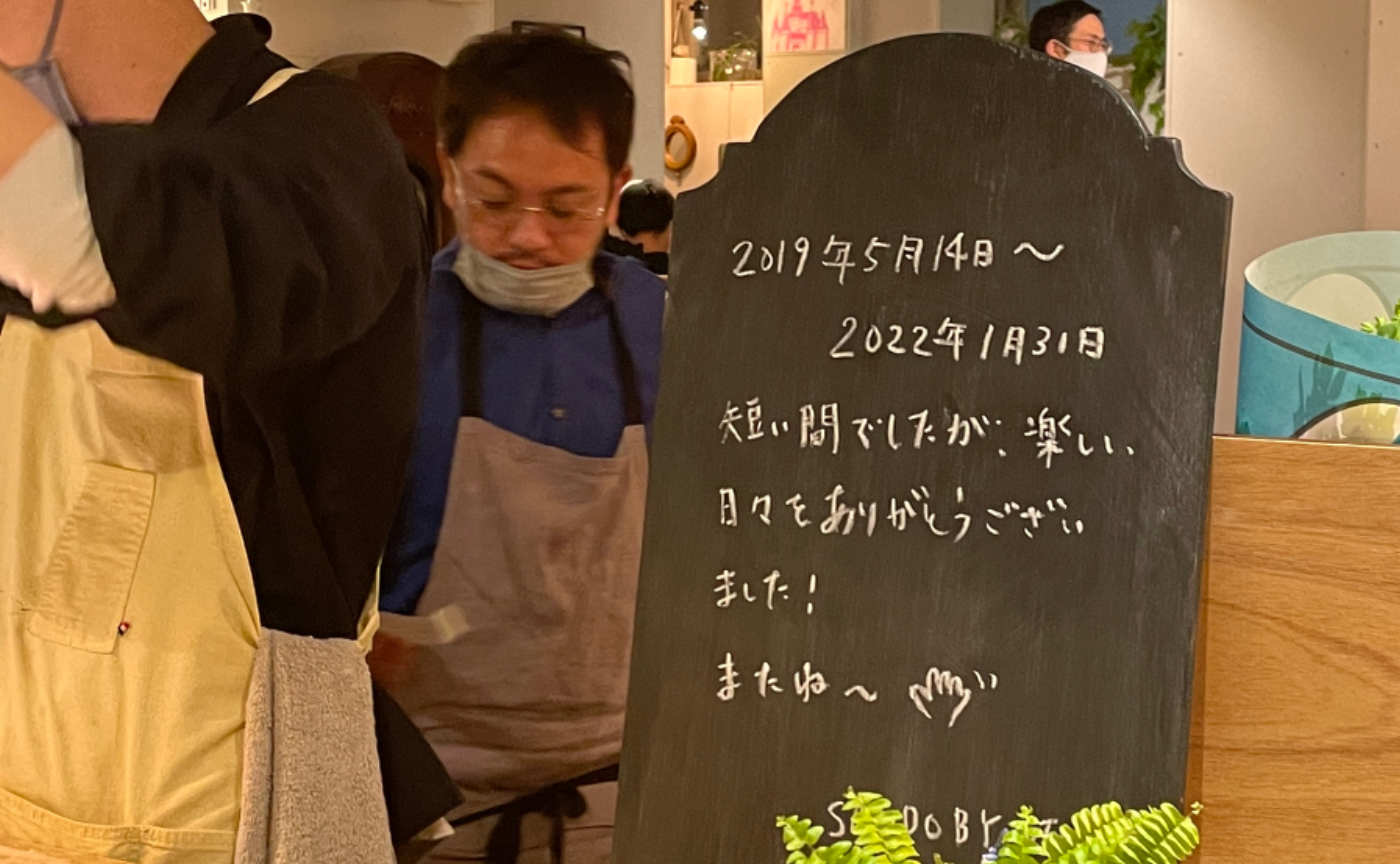 2019年5月14日〜
2022年1月31日
短い間でしたが、楽しい
日々をありがとうござい
ました！
またね〜